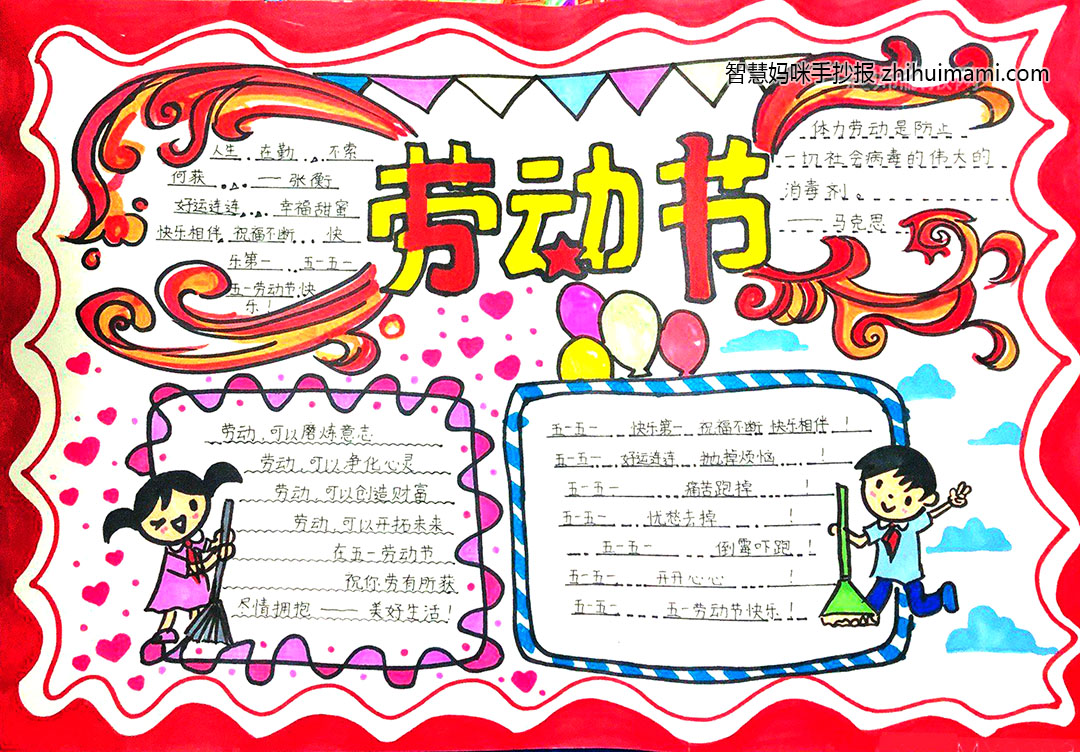 智慧妈咪手抄报 zhihuimami.com
劳动节
人生 . 在勤 . , 不索
何获 . . —— 张衡
好运连连 . . . 幸福甜蜜
快乐相伴 祝福不断 . . 快
乐第一 . . 五一五一
五一劳动节 快
乐！
体力劳动是防止
一切社会病毒的伟大的
消毒剂。
——马克思
劳动,可以磨炼意志
劳动,可以净化心灵
劳动,可以创造财富
劳动,可以开拓未来
在五一劳动节
祝你劳有所获
尽情拥抱——美好生活！
五一五一 快乐第一 祝福不断 快乐相伴！
五一五一 好运连连 抛掉烦恼！
五一五一 痛苦跑掉！
五一五一 忧愁去掉！
五一五一 倒霉吓跑！
五一五一 开开心心！
五一五一 五一劳动节快乐！